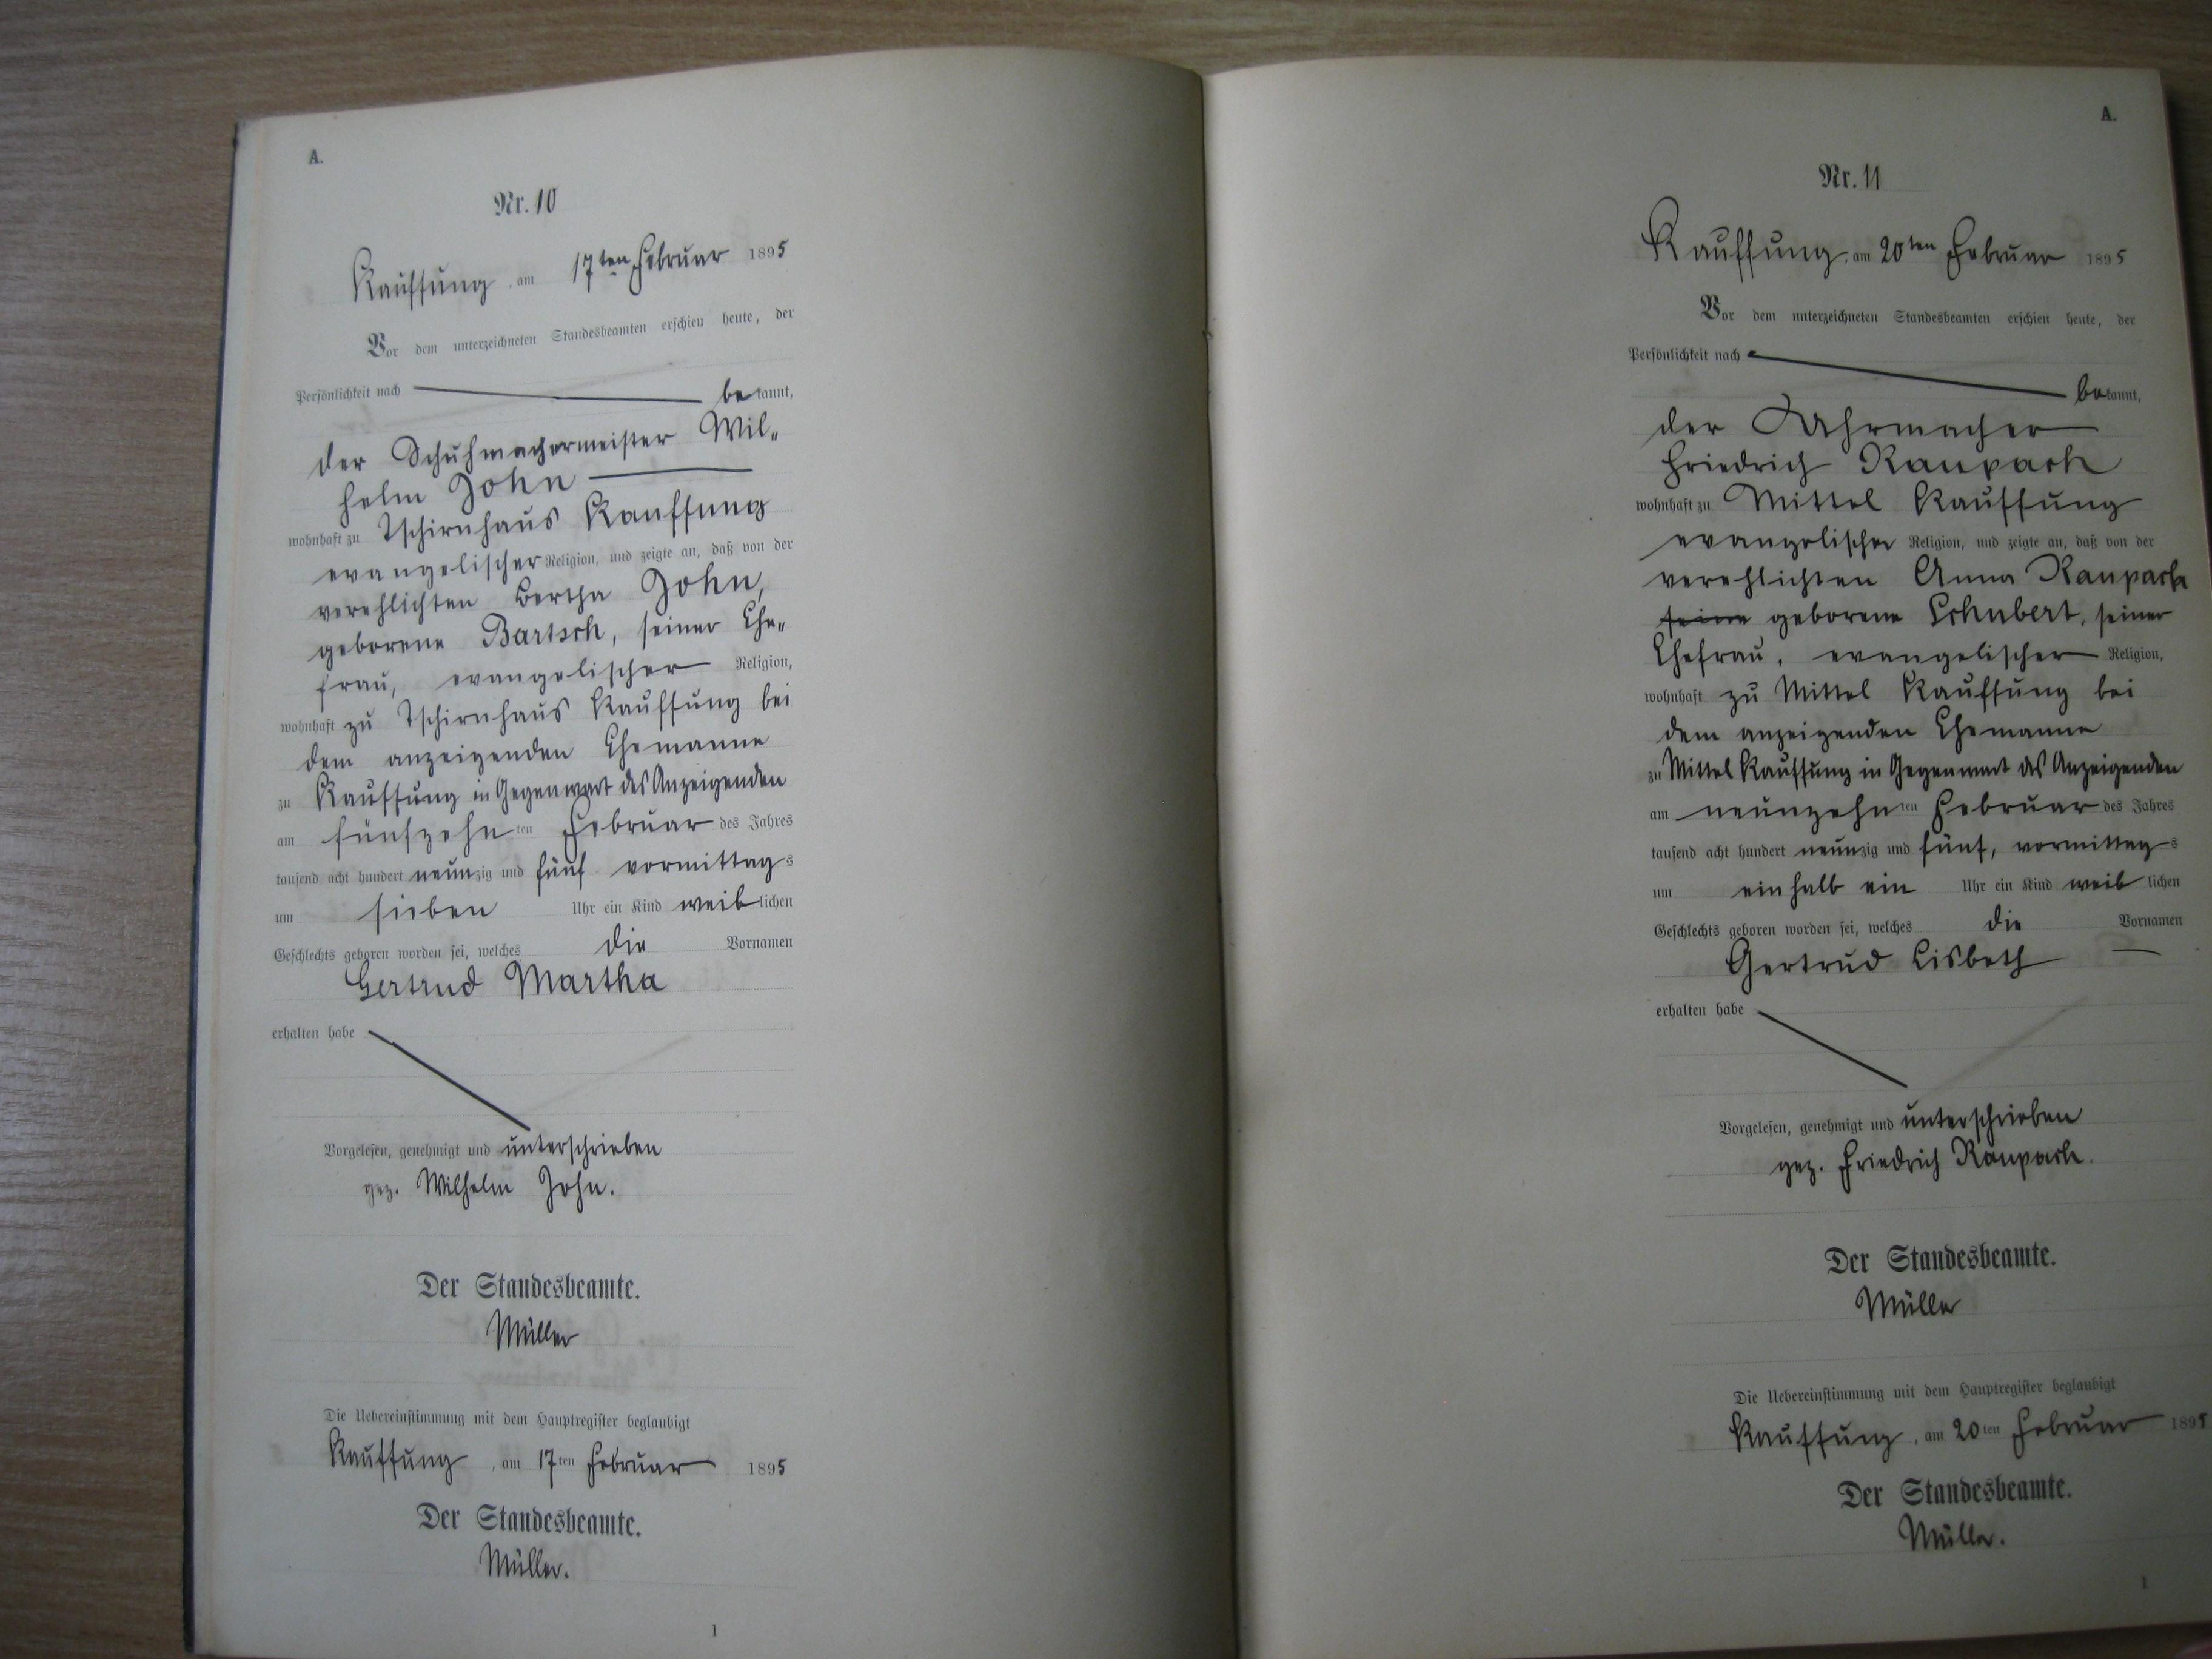 A.
Nr. 10
Kauffung, am 17ten Februar 1895
Vor dem unterzeichneten Standesbeamten erschien heute, der
Persönlichkeit nach bekannt,
der Schuhmachermeister Wil„
helm John
wohnhaft zu Tschirnhaus Kauffung
evangelischer Religion, und zeigte an, daß von der
verehlichten Bertha John,
geborene Bartsch, seiner Ehe„
frau, evangelischer Religion,
wohnhaft zu Tschirnhaus Kauffung bei
dem anzeigenden Ehemanne
zu Kauffung in Gegenwart des Anzeigenden
am fünfzehnten Februar des Jahres
tausend acht hundert neunzig und fünf vormittags
um sieben Uhr ein Kind weiblichen
Geschlechts geboren worden sei, welches die Vornamen
Gertrud Martha
erhalten habe
Vorgelesen, genehmigt und unterschrieben
gez. Wilhelm John.
Der Standesbeamte.
Müller
Die Uebereinstimmung mit dem Hauptregister beglaubigt
Kauffung, am 17ten Februar 1895
Der Standesbeamte.
Müller.
1
A.
Nr. 11
Kauffung, am 20ten Februar 1895
Vor dem unterzeichneten Standesbeamten erschien heute, der
Persönlichkeit nach
bekannt,
der Uhrmacher
Friedrich Raupach
wohnhaft zu Mittel Kauffung
evangelischer Religion, und zeigte an, daß von der
verehlichten Anna Raupach
seine geborene Schubert, seiner
Ehefrau, evangelischer Religion,
wohnhaft zu Mittel Kauffung bei
dem anzeigenden Ehemanne
zu Mittel Kauffung in Gegenwart des Anzeigenden
am neunzehnten Februar des Jahres
tausend acht hundert neunzig und fünf, vormittags
um ein halb ein Uhr ein Kind weiblichen
Geschlechts geboren worden sei, welches die Vornamen
Gertrud Lisbeth
erhalten habe
Vorgelesen, genehmigt und unterschrieben
gez. Friedrich Raupach.
Der Standesbeamte.
Müller
Die Uebereinstimmung mit dem Hauptregister beglaubigt
Kauffung, am 20ten Februar 1895
Der Standesbeamte.
Müller.
1